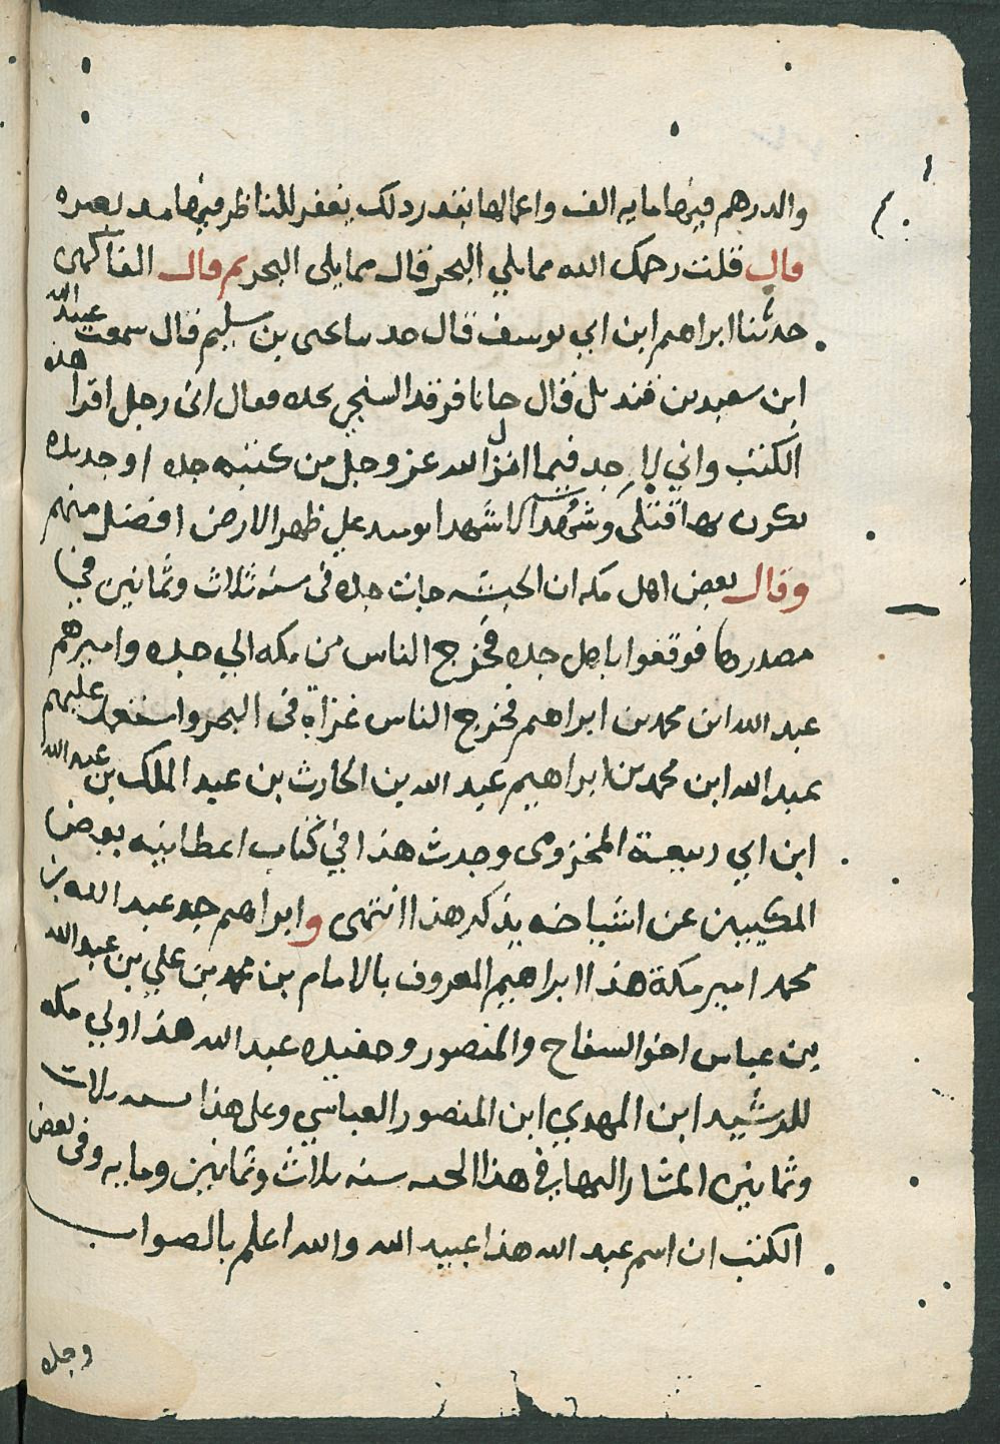 والدرهم فيها مايه الف واعمالها بقدر ذلك يغفر للناظر فيها مد بصره
قال قلت رحمك الله مما يلي البحر قال مما يلي البحر ثم قال الفاكهي
حدثنا ابراهيم ابن ابي يوسف قال حدثنا يحيى بن سليم قال سمعت عبدالله
ابن سعيد بن قنديل قال جانا فرقد السنجي بجده فقال اني رجل اقرا هذه
الكتب واني لاجد فيما انزل الله عز وجل من كتبه جده او جديده
يكون بها قتلى وشهدا لا شهدا يوميد على ظهر الارض افضل منهم
وقال بعض اهل مكه ان الحبشه جات جده في سنه ثلاث وثمانين في
مصدرها فوقعوا باهل جده فخرج الناس من مكه الي جده واميرهم
عبد الله ابن محمد بن ابراهيم فخرج الناس غزاة في البحر واستعمل عليهم
عبد الله ابن محمد بن ابراهيم عبد الله بن الحارث بن عبد الملك بن عبد الله
ابن ابي ربيعة المخزومي وجدت هذا في كتاب اعطانيه بعض
المكيين عن اشياخه يذكر هذا انتهى وابراهيم جد عبد الله بن
محمد امير مكة هذا ابراهيم المعروف بالامام بن محمد بن علي بن عبد الله
بن عباس اخو السفاح والمنصور وحفيده عبد الله هذا ولي مكه
للرشيد ابن المهدي ابن المنصور العباسي وعلى هذا سنه ثلاث
وثمانين المشار اليها في هذا الخبر سنه ثلاث وثمانين ومايه وفي بعض
الكتب ان اسم عبد الله هذا عبيد الله والله اعلم بالصواب
وجده